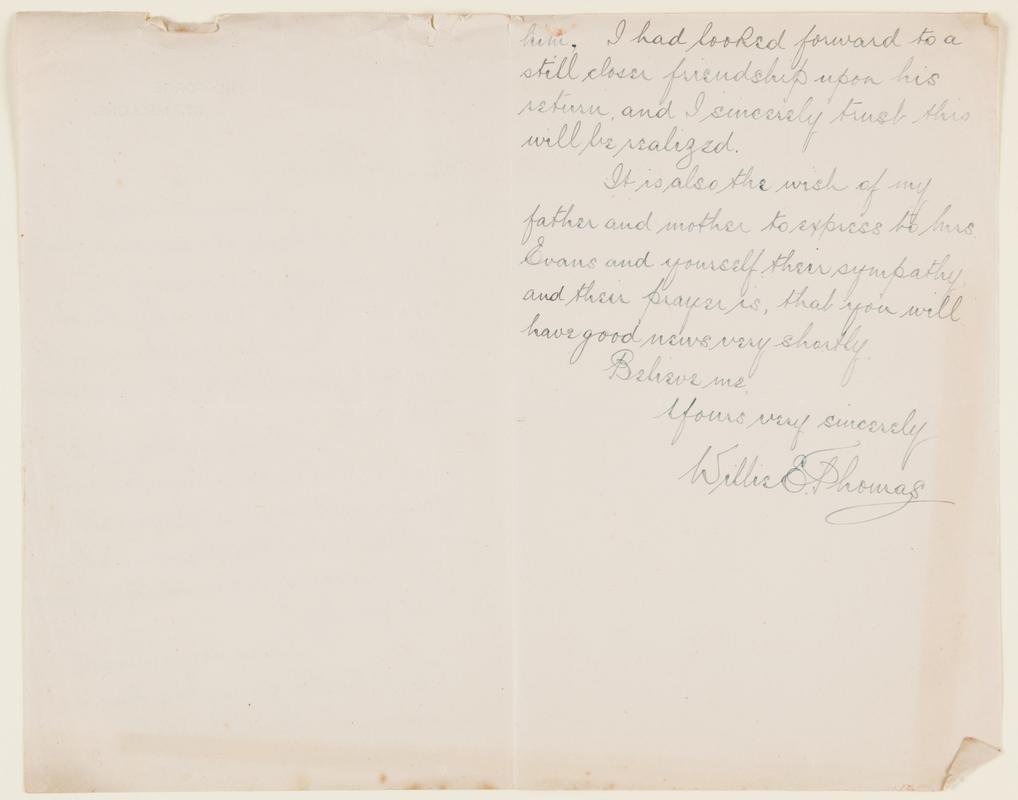 him. I had looked forward to a
still closer friendship upon his
return, and I sincerely trust this
will be realized.
It is also the wish of my
father and mother to express to Mrs.
Evans and yourself their sympathy,
and their prayer is, that you will
have good news very shortly.
Believe me,
Yours very sincerely
Willie E. Thomas